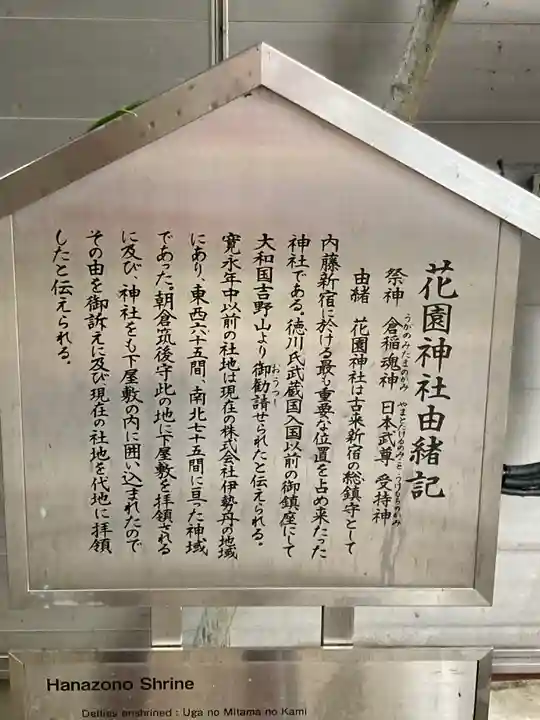 花園神社由緒記
祭神 倉稲魂神 日本武尊 受持神
うかのみたまのかみ やまとたけるのみこと うけもちのかみ
由緒 花園神社は古来新宿の総鎮守として
内藤新宿に於ける最も重要な位置を占め来たった
神社である。徳川氏武蔵国入国以前の御鎮座にして
大和国吉野山より御勧請せられたと伝えられる。
おうつし
寛永年中以前の社地は現在の株式会社伊勢丹の地域
にあり、東西六十五間、南北七十五間に亘った神域
であった。朝倉筑後守此の地に下屋敷を拝領される
に及び、神社をも下屋敷の内に囲い込まれたので
その由を御訴えに及び現在の社地を代地に拝領
したと伝えられる。
Hanazono Shrine
Deities enshrined : Uga no Mitama no Kami